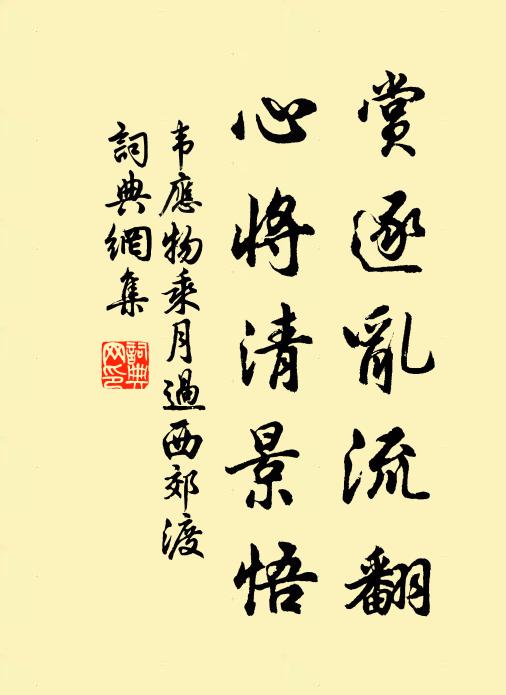 賞逐亂流翻
心將清景悟
韦應物乘月過西郊渡
詞典網集
詞典网印